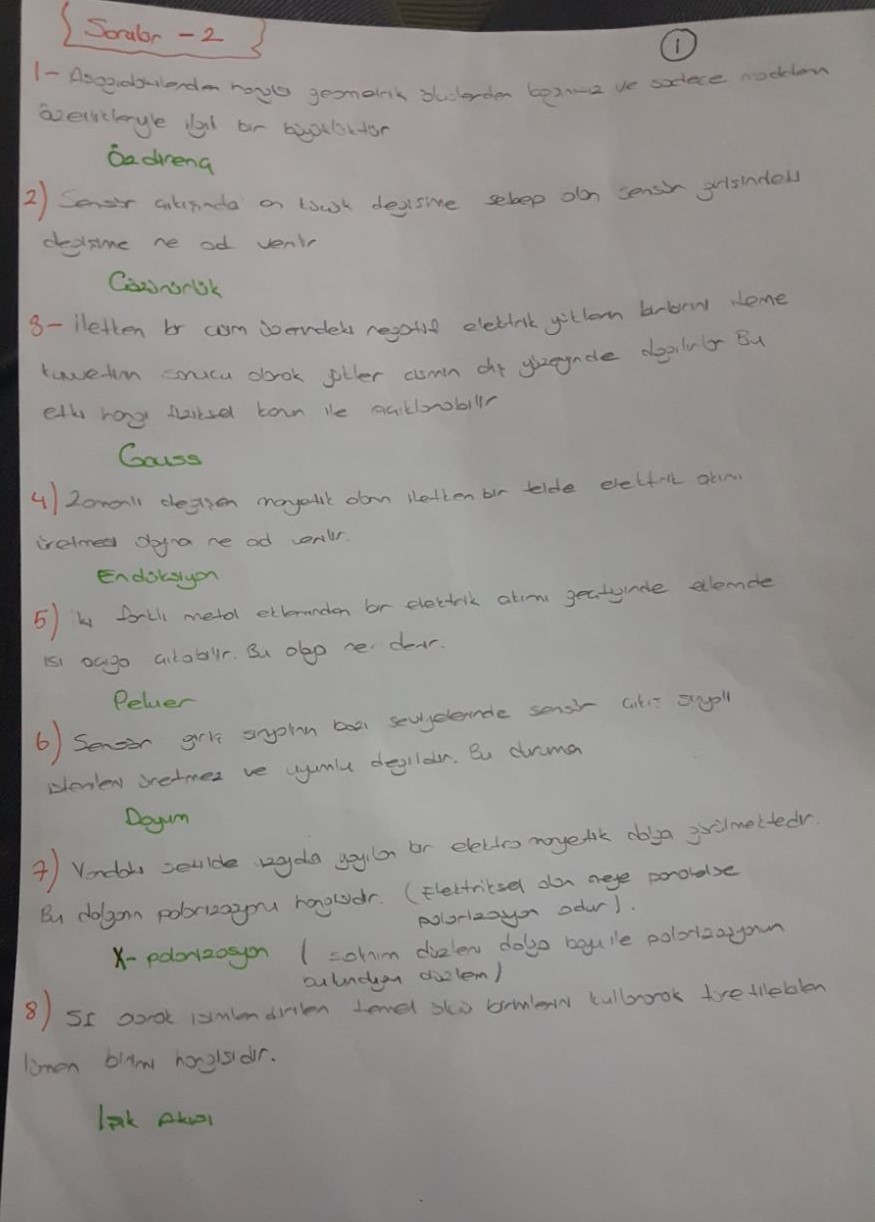 Sorular - 2
1
1- Aşağıdakilerden hangisi geometrik ölçülerden bağımsız ve sadece maddenin
özellikleriyle ilgili bir büyüklüktür
Özdirenç
2) Sensör çıkışında en küçük değişime sebep olan sensör girişindeki
değişime ne ad verilir
Çözünürlük
3- İletken bir cisim üzerindeki negatif elektrik yüklerin birbirini itme
kuvvetinin sonucu olarak yükler cismin dış yüzeyinde dağılırlar Bu
etki hangi fiziksel kanun ile açıklanabilir
Gauss
4) Zamanlı değişen manyetik alanın iletken bir telde elektrik akımı
üretmesi olayına ne ad verilir.
Endüksiyon
5) İki farklı metal eklemınden bir elektrik akımı geçtiğinde eklemde
ısı açığa çıkabilir. Bu olaya ne denir.
Peltier
6) Sensör giriş sinyalinin bazı seviyelerinde sensör çıkış sinyali
istenileni üretmez ve uyumlu değildir. Bu duruma
Doyum
7) Yandaki şekilde uzayda yayılan bir elektro manyetik dalga görülmektedir.
Bu dalganın polarizasyonu hangisidir. (Elektriksel alan neye paralelse
polarizasyon odur).
X- polarizasyon ( salınım düzlemi dalga boyu ile polarizasyonun
bulunduğu düzlem)
8) SI olarak isimlendirilen temel ölçü birimlerini kullanarak türetilebilen
lümen birimi hangisidir.
Işık Akısı